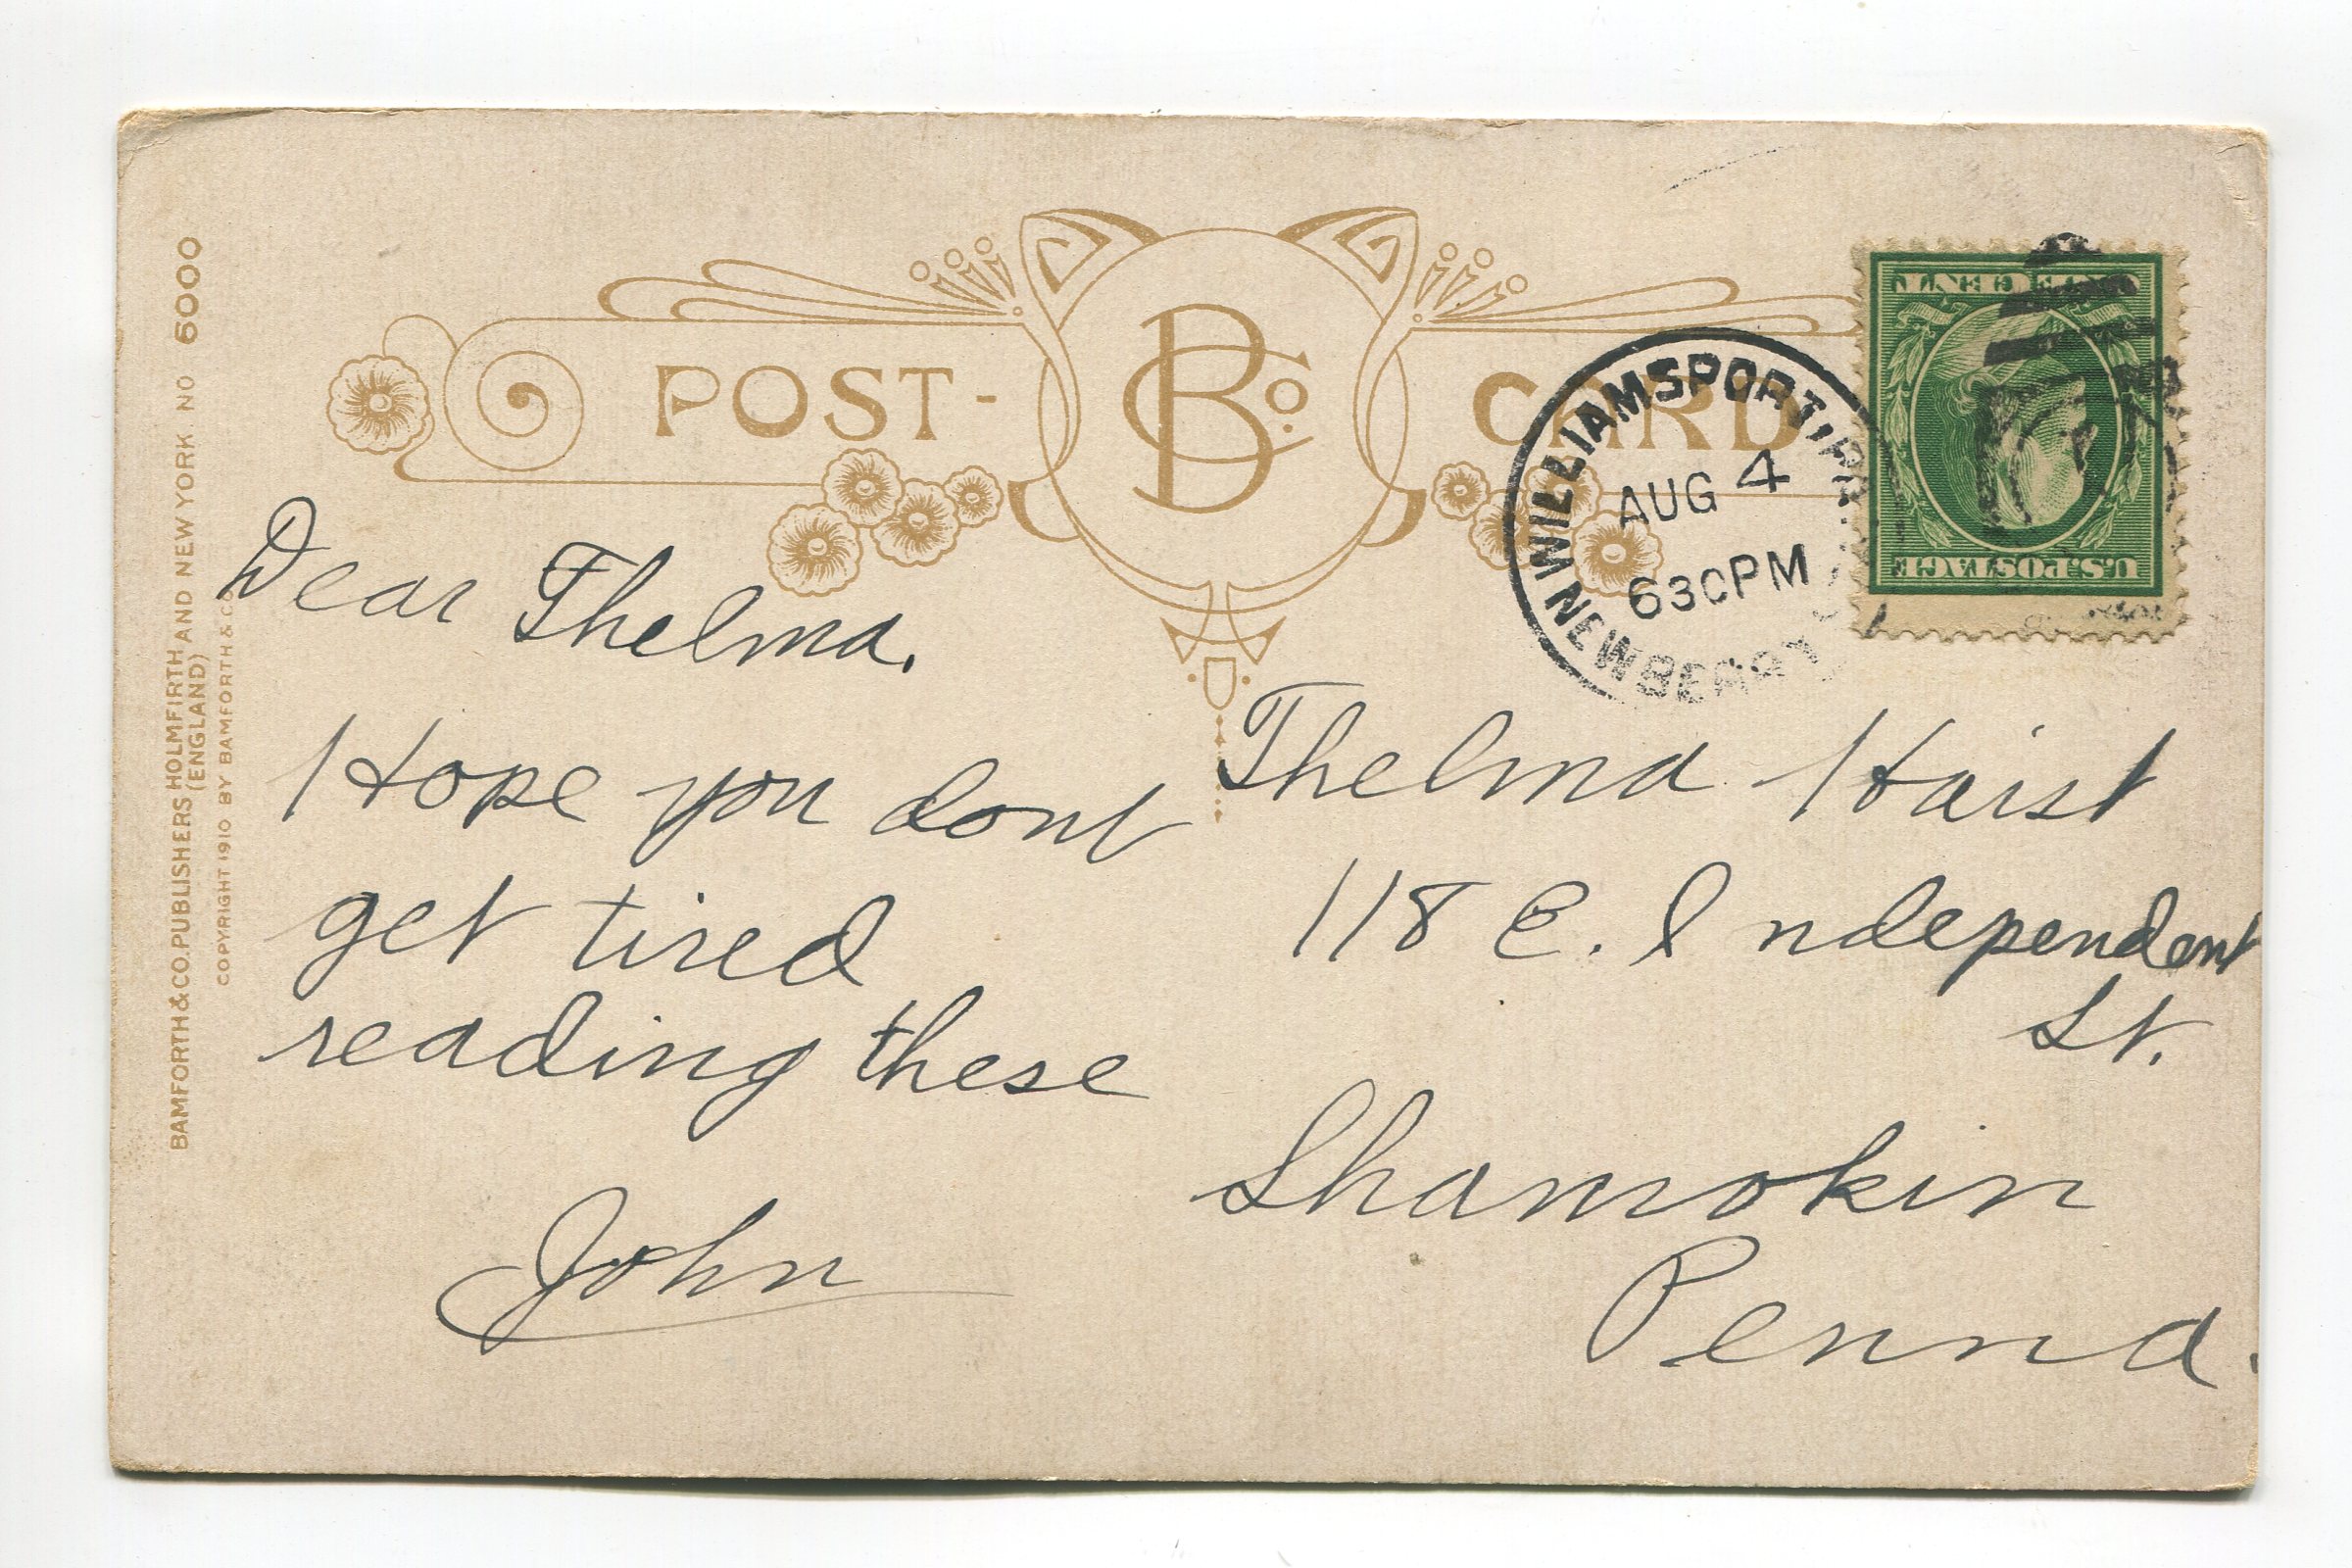 POST-CARD
B Co.
WILLIAMSPORT, PA.
AUG 4
630PM
NEWBERRY
ONE CENT
U.S. POSTAGE
BAMFORTH & CO. PUBLISHERS HOLMFIRTH AND NEW YORK. NO 6000
(ENGLAND)
COPYRIGHT 1910 BY BAMFORTH & CO
Dear Thelma.
Hope you dont
get tired
reading these
John
Thelma Haist
118 E. Independent
St.
Shamokin
Penna.